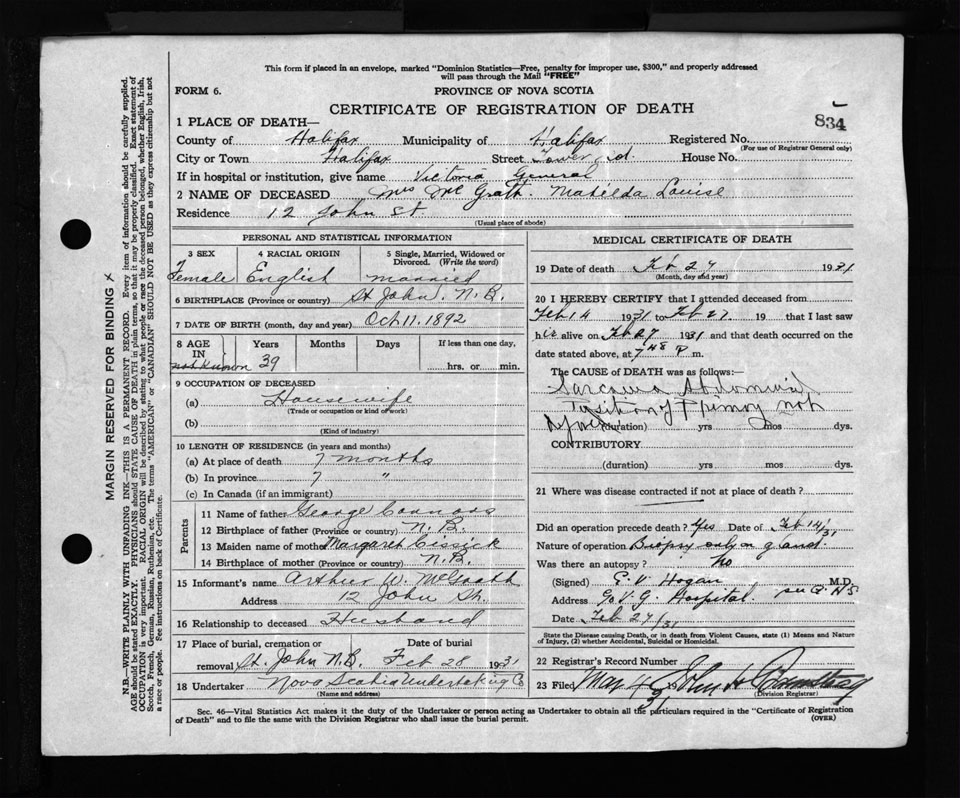 This form if placed in an envelope, marked "Dominion Statistics—Free, penalty for improper use, $300," and properly addressed
will pass through the Mail "FREE"
FORM 6.
PROVINCE OF NOVA SCOTIA
CERTIFICATE OF REGISTRATION OF DEATH
834
1 PLACE OF DEATH—
County of Halifax Municipality of Halifax Registered No.
(For use of Registrar General only)
City or Town Halifax Street Tower Rd. House No.
If in hospital or institution, give name Victoria General
2 NAME OF DECEASED Mrs McGrath Matilda Louise
Residence 12 John St
(Usual place of abode)
PERSONAL AND STATISTICAL INFORMATION
3 SEX 4 RACIAL ORIGIN 5 Single, Married, Widowed or
Divorced. (Write the word)
Female English married
6 BIRTHPLACE (Province or country) St John. N.B.
7 DATE OF BIRTH (month, day and year) Oct. 11. 1892
8 AGE Years Months Days If less than one day,
IN
39 hrs. or min.
9 OCCUPATION OF DECEASED
(a) Housewife
(Trade or occupation or kind of work)
(b)
(Kind of industry)
10 LENGTH OF RESIDENCE (in years and months)
(a) At place of death 7 months
(b) In province 7 "
(c) In Canada (if an immigrant)
Parents
11 Name of father George Connors
12 Birthplace of father (Province or country) N.B.
13 Maiden name of mother Margaret Cissick
14 Birthplace of mother (Province or country) N.B.
15 Informant's name Arthur W. McGrath
Address 12 John St.
16 Relationship to deceased Husband
17 Place of burial, cremation or Date of burial
removal St. John N.B. Feb 28 1931
18 Undertaker Nova Scotia Undertaking Co
(Name and address)
MEDICAL CERTIFICATE OF DEATH
19 Date of death Feb 27 1931
(Month, day and year)
20 I HEREBY CERTIFY that I attended deceased from
Feb 14 1931 to Feb 27 19 that I last saw
h er alive on Feb 27 1931 and that death occurred on the
date stated above, at 7 48 P m.
The CAUSE OF DEATH was as follows:
Sarcoma Abdominal
primary not
(duration) yrs mos dys.
CONTRIBUTORY
(duration) yrs mos dys.
21 Where was disease contracted if not at place of death?
Did an operation precede death? Yes Date of Feb 14/31
Nature of operation Biopsy only on gland.
Was there an autopsy? no
(Signed) E. V. Hogan M.D.
Address V.G. Hospital.
Date Feb 27/31
State the Disease causing Death, or in death from Violent Causes, state (1) Means and Nature
of Injury, (2) whether Accidental, Suicidal or Homicidal.
22 Registrar's Record Number
23 Filed Mar 4 31 John H
(Division Registrar)
Sec. 46—Vital Statistics Act makes it the duty of the Undertaker or person acting as Undertaker to obtain all the particulars required in the "Certificate of Registration
of Death" and to file the same with the Division Registrar who shall issue the burial permit.
(OVER)
MARGIN RESERVED FOR BINDING
N.B.—WRITE PLAINLY WITH UNFADING INK—THIS IS A PERMANENT RECORD. Every item of information should be carefully supplied.
AGE should be stated EXACTLY. PHYSICIANS should STATE CAUSE OF DEATH in plain terms, so that it may be properly classified. Exact statement of
OCCUPATION is very important. RACIAL ORIGIN will be described by stating to what people or race the deceased person belonged, whether English, Irish,
Scotch, French, German, Russian, Ruthenian, etc. The terms "AMERICAN" or "CANADIAN" SHOULD NOT BE USED as they express citizenship but not
a race or people. See instructions on back of Certificate.